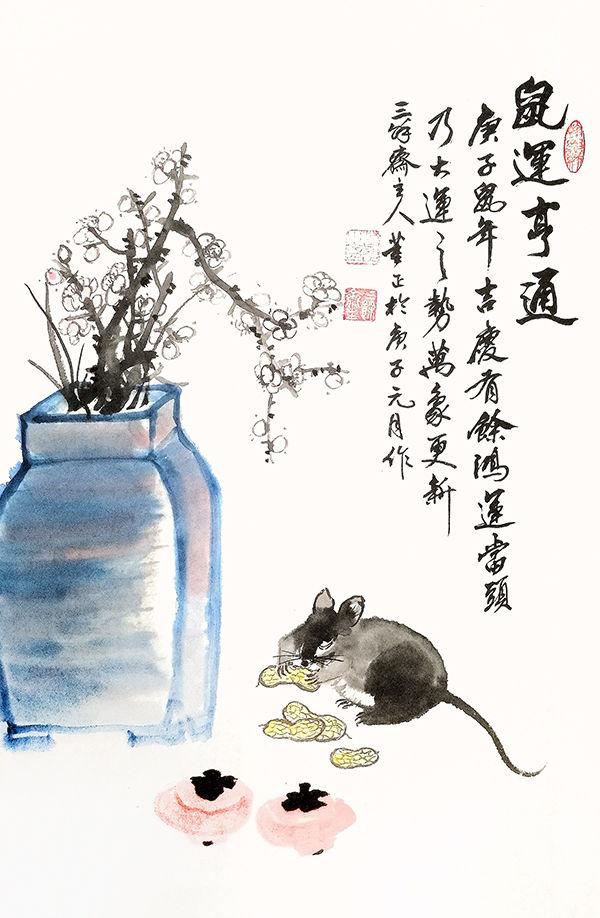 鼠運亨通
庚子鼠年吉慶有餘鴻運當頭
乃大運之勢萬象更新
三餘齋主人董正於庚子元月作